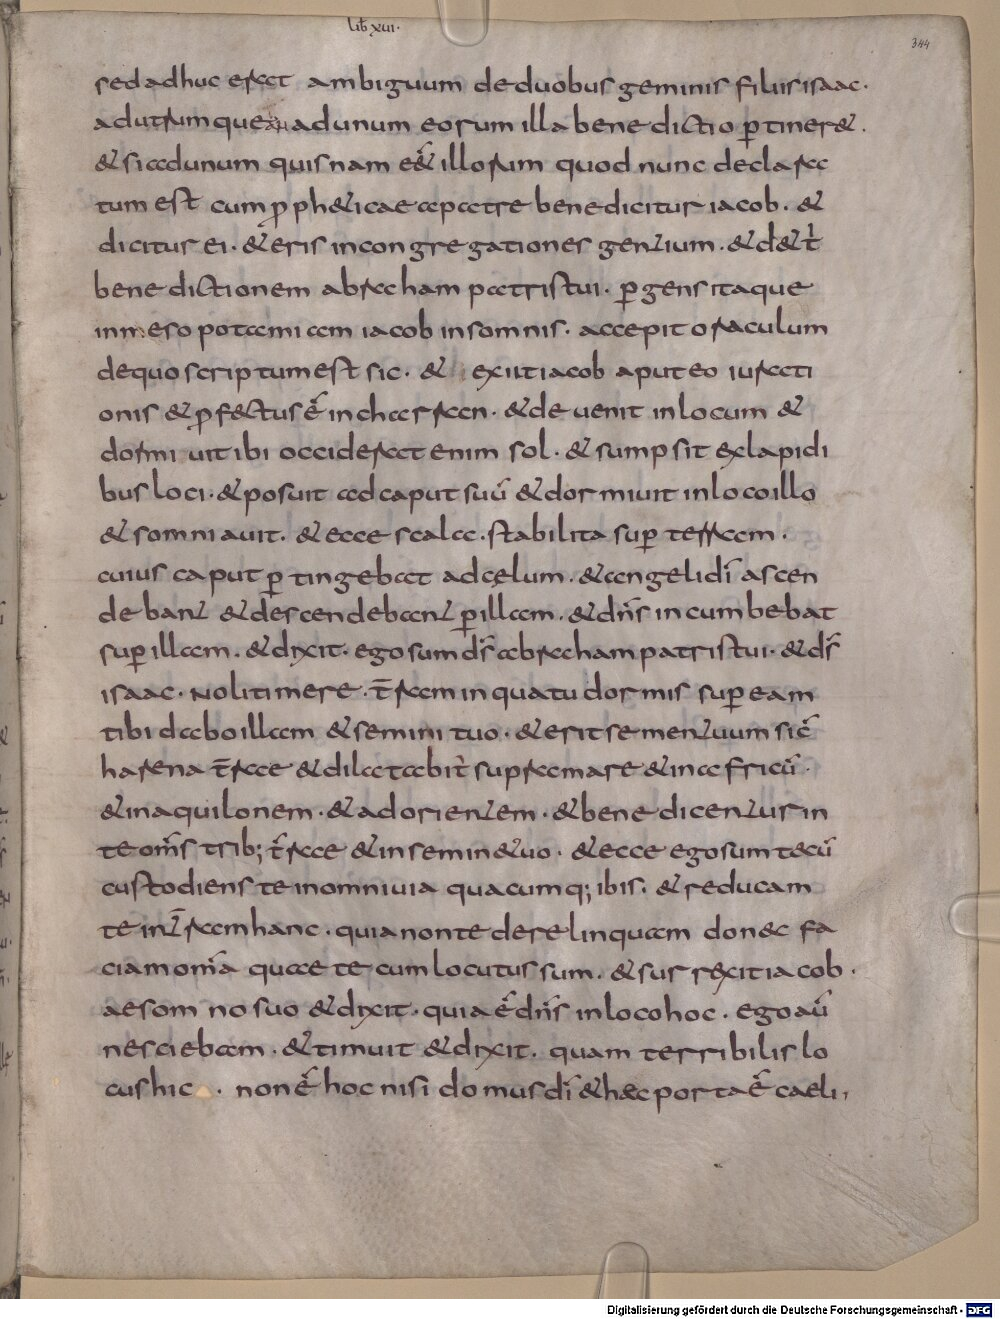 lib xui·
344
sed adhuc erat ambiguum de duobus geminis filiis isaac·
ad utrumque an ad unum eorum illa benedictio ꝑtineret·
& si ad unum quisnam eēt illorum quod nunc declara
tum est cum ꝓph&icae a patre benedicitur iacob· &
dicitur ei· & eris in congregationes gentium· & d& t̄
benedictionem abraham patris tui· ꝑgens itaque
in mesopotamiam iacob in somnis· accepit oraculum
de quo scriptum est sic· & exiit iacob a puteo iurati
onis & ꝓfectus ē in charran· & deuenit in locum &
dormiuit ibi occiderat enim sol· & sumpsit ex lapidi
bus loci· & posuit ad caput suū & dormiuit in loco illo
& somniauit· & ecce scala· stabilita suꝑ terram·
cuius caput ꝑtingebat ad cęlum· & angeli dī ascen
debant & descendebant ꝑ illam· & dn̄s incumbebat
suꝑ illam· & dixit· ego sum ds̄ abraham patris tui· & ds̄
isaac· noli timere· t̄ram in qua tu dormis suꝑ eam
tibi dabo illam & semini tuo· & erit semen tuum sic̄
harena t̄rae & dilatabit̄ supra mare & in africū·
& in aquilonem· & ad orientem· & benedicentur in
te om̄s trib; t̄rae & in semine tuo· & ecce ego sum tecū
custodiens te in omni uia quacumq; ibis· & reducam
te in t̄ram hanc· quia non te derelinquam donec fa
ciam om̄a quae te cum locutus sum· & surrexit iacob·
ae somno suo & dixit· quia ē dn̄s in loco hoc· ego aū
nesciebam· & timuit & dixit· quam terribilis lo
cus hic · non ē hoc nisi domus dī & haec porta ē caeli,
Digitalisierung gefördert durch die Deutsche Forschungsgemeinschaft - DFG